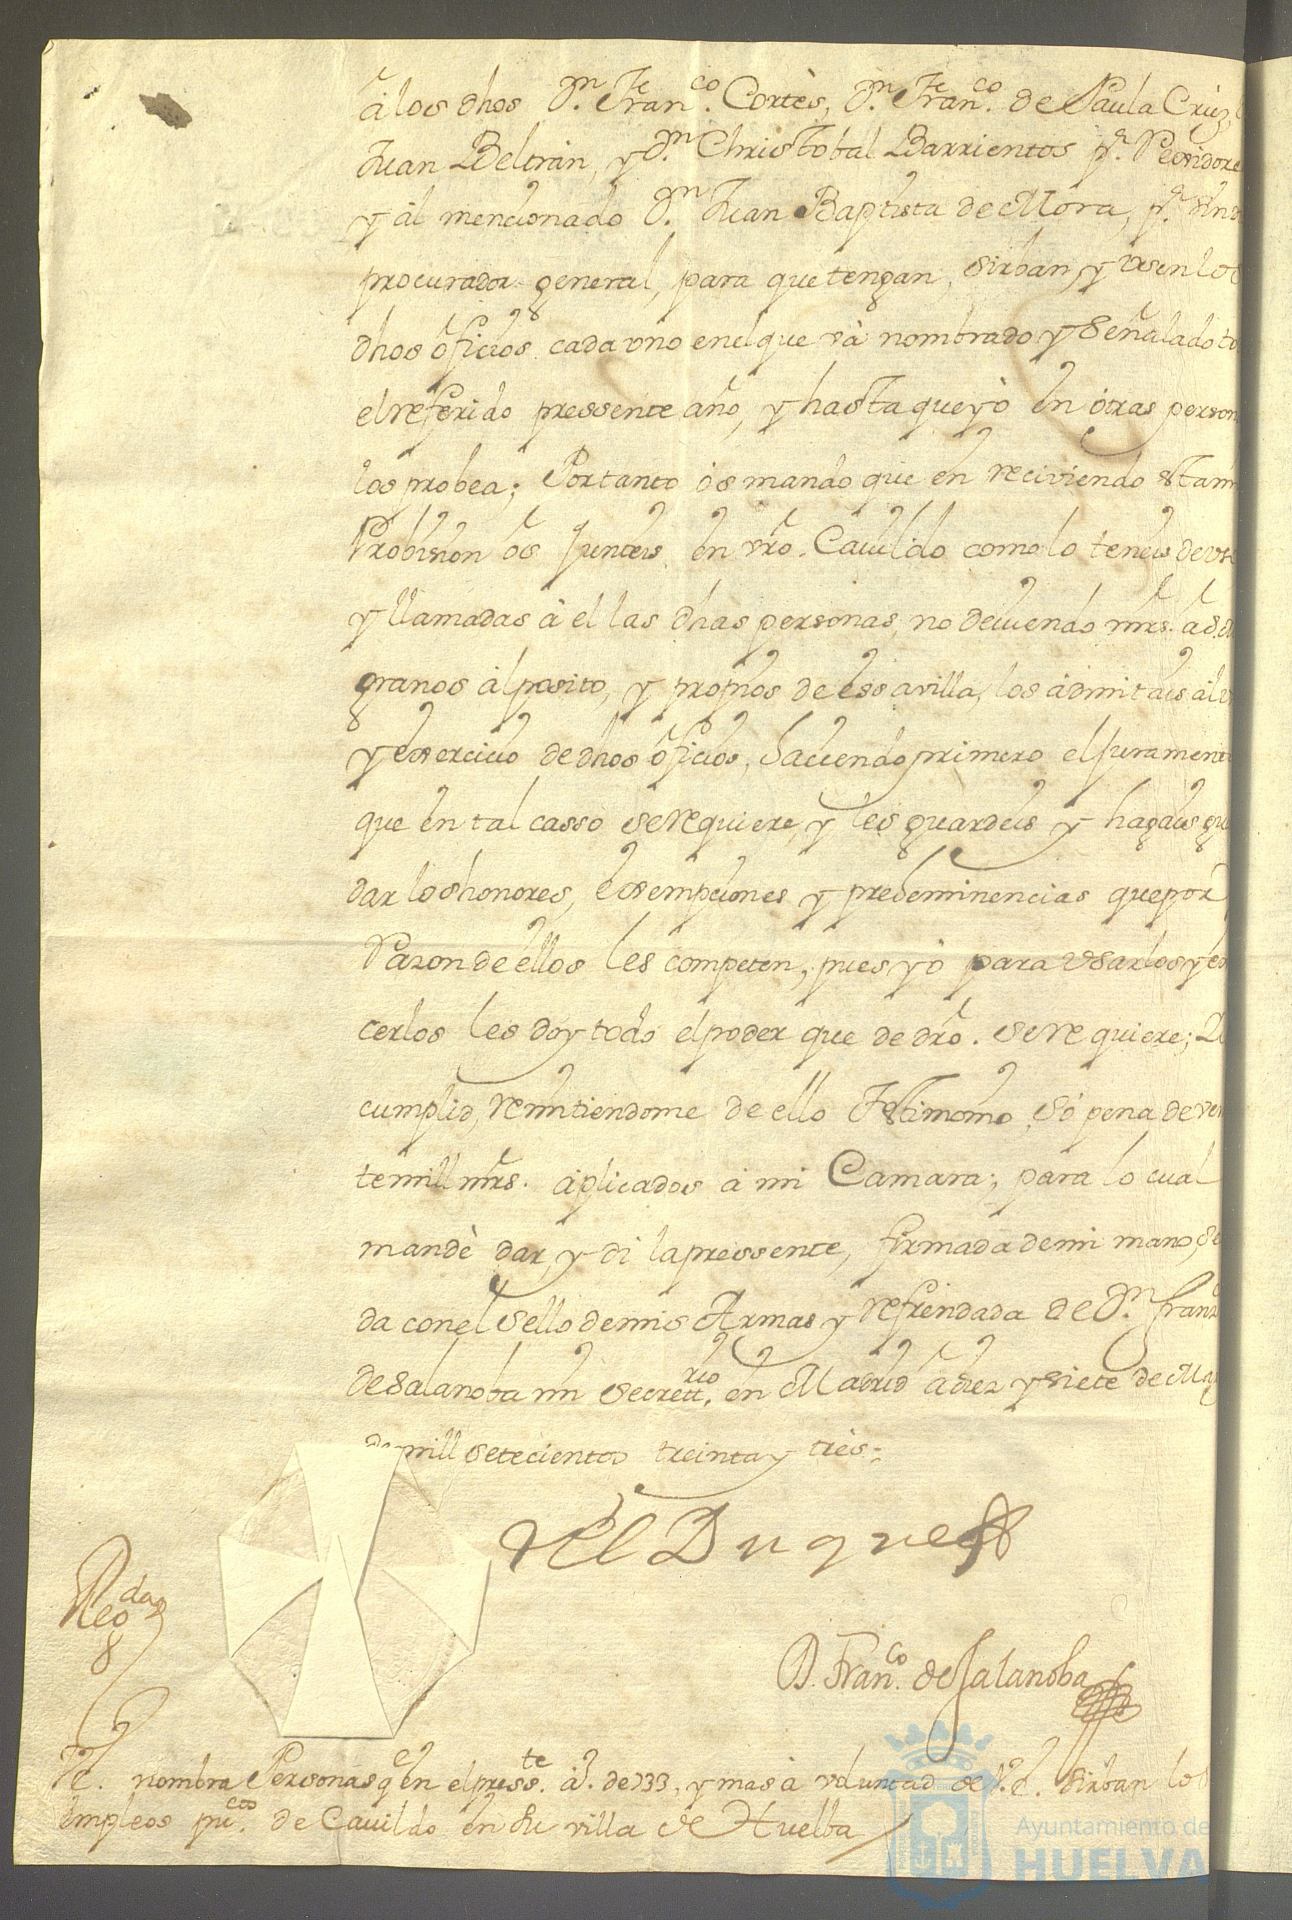 â los dhos Dn. Franco. Cortès, Dn. Franco. de Paula Crùz,
Juan Beltràn, y Dn. Christobal Barrientos pr. Regidore
y âl mencionado Dn. Juan Baptista de Mora, pr. Sind
procurador general, para que tengan, sirban, y usen los
dhos ôficios cada uno en el que và nombrado y señalado to
el referido pressente año, y hasta que yò en ótras person
los probea; Por tanto ós mando que en reciviendo esta mi
Probision ós junteis en vro. Cavildo como lo teneis de us
y llamadas à el las dhas personas, no deviendo mrs. a S.M.
granos àl posito, y propios de essa villa, los admitais àl u
y exercicio de dhos ôficios, haciendo primero el jurament
que en tal casso se requiere, y les guardeis y hagais gu
dar los honores, exsempciones y preheminencias que por
Razon de ellos les competen, pues yò para usarlos y ex
cerlos les doy todo el poder que de dro. se requiere; Lo
cumplid, remitiendome de ello Testimonio, só pena de vei
te mill mrs. aplicados à mi Camara; para lo cual
mandè dar, y di la pressente, firmada de mi mano, se
da con el sello de mis Armas y refrendada de Dn. Franco
de Salanoba mi Secrettrio. en Madrid à diez y siete de Ma
de mill setecientos treinta y très.
El Duque
Regda
D. Franco. de Salanoba
V.E. nombra Personas qe en el presste. añ. de 733, y mas à voluntad de V.E. sirban los
empleos puccos. de Cavildo en su villa de Huelba
Ayuntamiento de
HUELVA